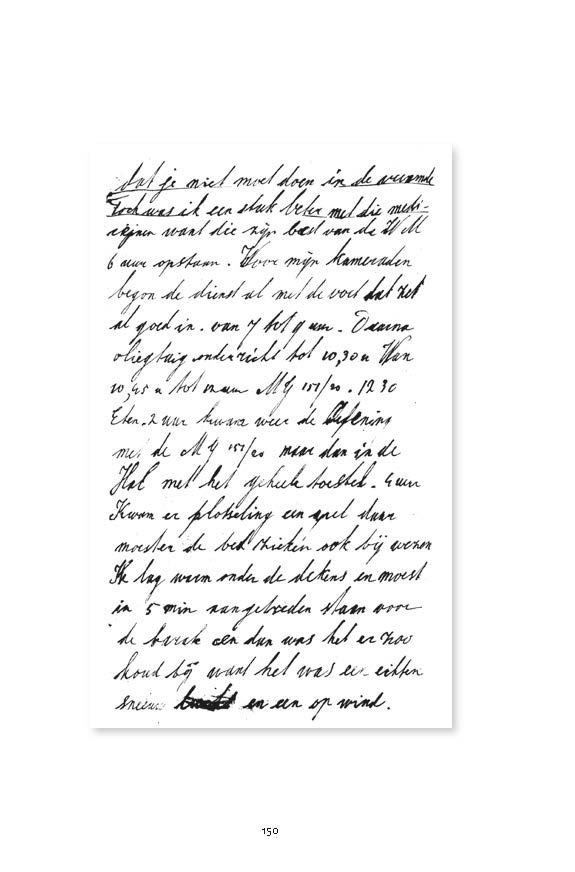 dat je niet moet doen in de vreemde
Toch was ik een stuk beter met die medi-
cijnen want die zijn best van de W M
6 uur opstaan. Voor mijn kameraden
begon de dienst al met de voet dat het
al goed in. van 7 tot 9 uur. Daarna
vliegtuig onderricht tot 10,30 u Van
10,45 u tot 12 uur M G 151/20. 12 30
Eten. 2 uur kwam weer de Oefening
met de M G 151/20 maar dan in de
Hal met het geheele toestel. 4 uur
Kwam er plotseling een apel daar
moesten de bed zieken ook bij wezen
Ik lag warm onder de dekens en moest
in 5 min aangetreden staan voor
de barak en dan was het er zoo
koud bij want het was een echten
sneeuw en een op wind.
150